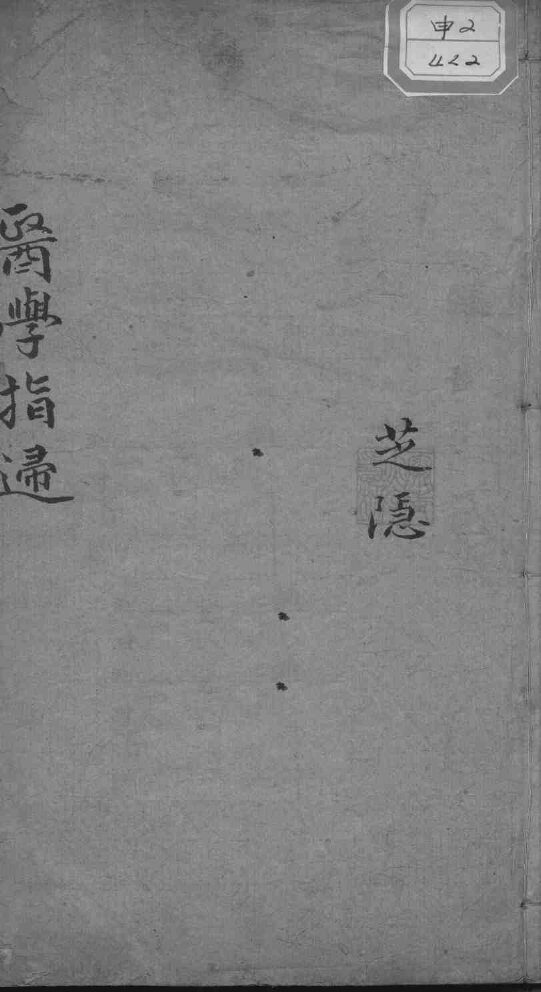 申2
422
芝隱
醫學指歸